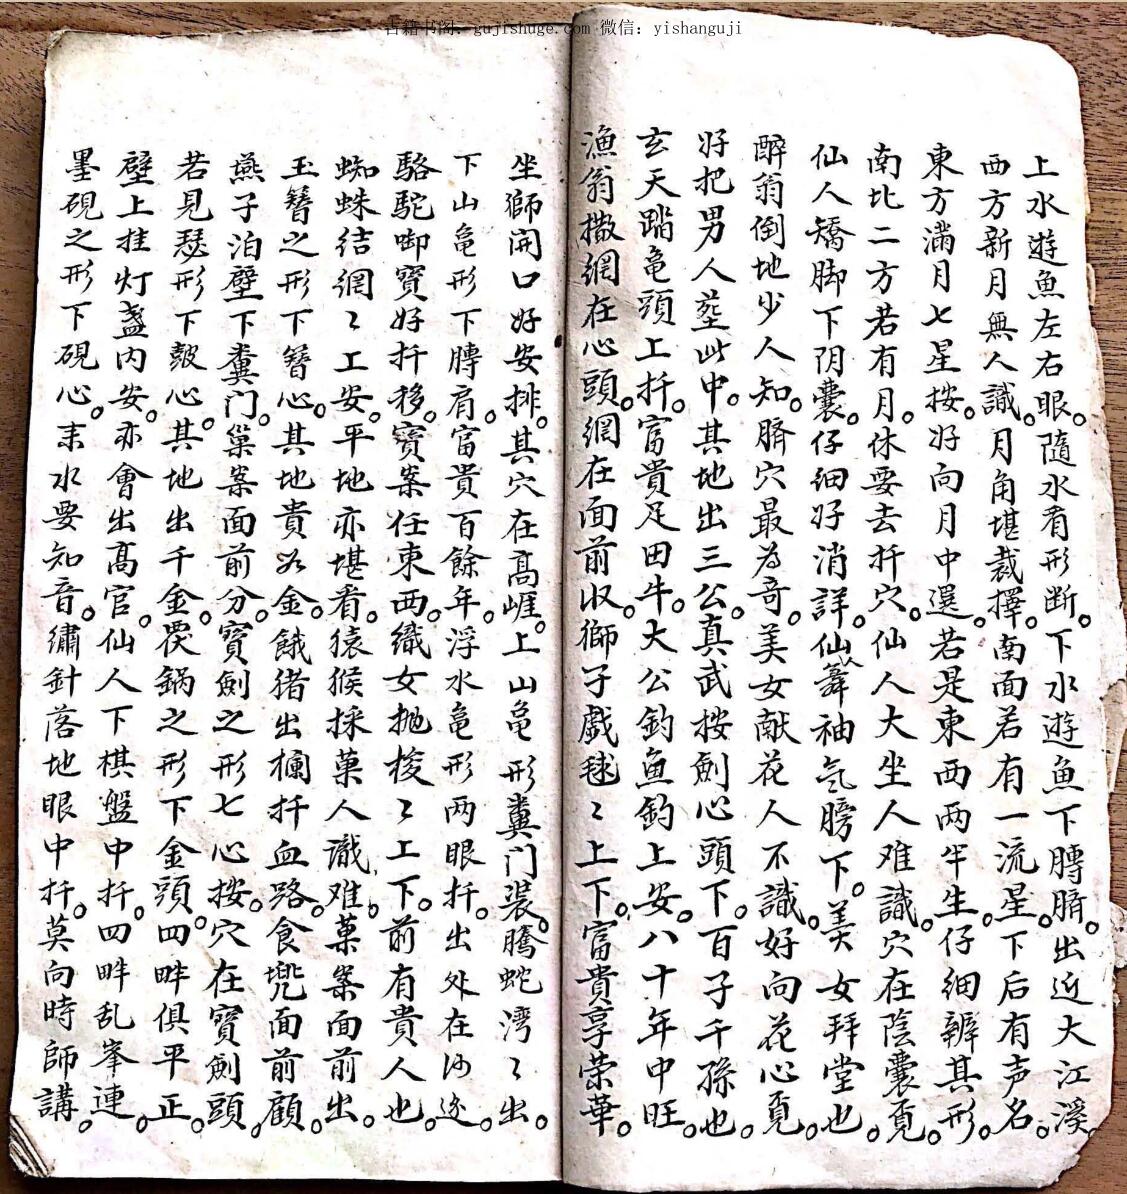 古籍书阁：gujishuge.com 微信：yishanguji
上水遊魚左右眼。隨水看形断。下水遊魚下膊腈。出近大江溪。
西方新月無人識。月角堪裁擇。南面若有一流星。下后有声名。
東方滿月七星按。好向月中選。若是東西两半生。仔细辨其形。
南北二方若有月。休要去扦穴。仙人大坐人难識。穴在陰囊覔。
仙人矯脚下阴囊。仔细好消詳。仙人舞袖气膀下。美女拜堂也。
醉翁倒地少人知。臍穴最為奇。美女献花人不識。好向花心覔。
好把男人塟此中。其地出三公。真武按劍心頭下。百子千孫也。
玄天踏亀頭上扦。富貴足田牛。大公釣魚釣上安。八十年中旺。
漁翁撒網在心頭。網在面前收。獅子戲毬〻上下。富貴享荣華。
坐獅開口好安排。其穴在高崕。上山亀形糞门裝。騰蛇湾〻出。
下山亀形下膊肩。富貴百餘年。浮水亀形两眼扦。出处在沙边。
駱駝啣寶好扦移。寶案任東西。織女抛梭〻上下。前有貴人也。
蜘蛛结網〻上安。平地亦堪看。猿猴採菓人識难。菓案面前出。
玉簪之形下簪心。其地貴如金。餓猪出欄扦血路。食兜面前顧。
燕子泊壁下糞门。巢案面前分。寶劍之形七心按。穴在寶劍頭。
若見瑟形下鼓心。其地出千金。覆鍋之形下金頭。四畔俱平正。
壁上挂灯盞内安。亦會出高官。仙人下棋盤中扦。四畔乱峯連。
墨硯之形下硯心。耒水要知音。繡針落地眼中扦。莫向時師講。